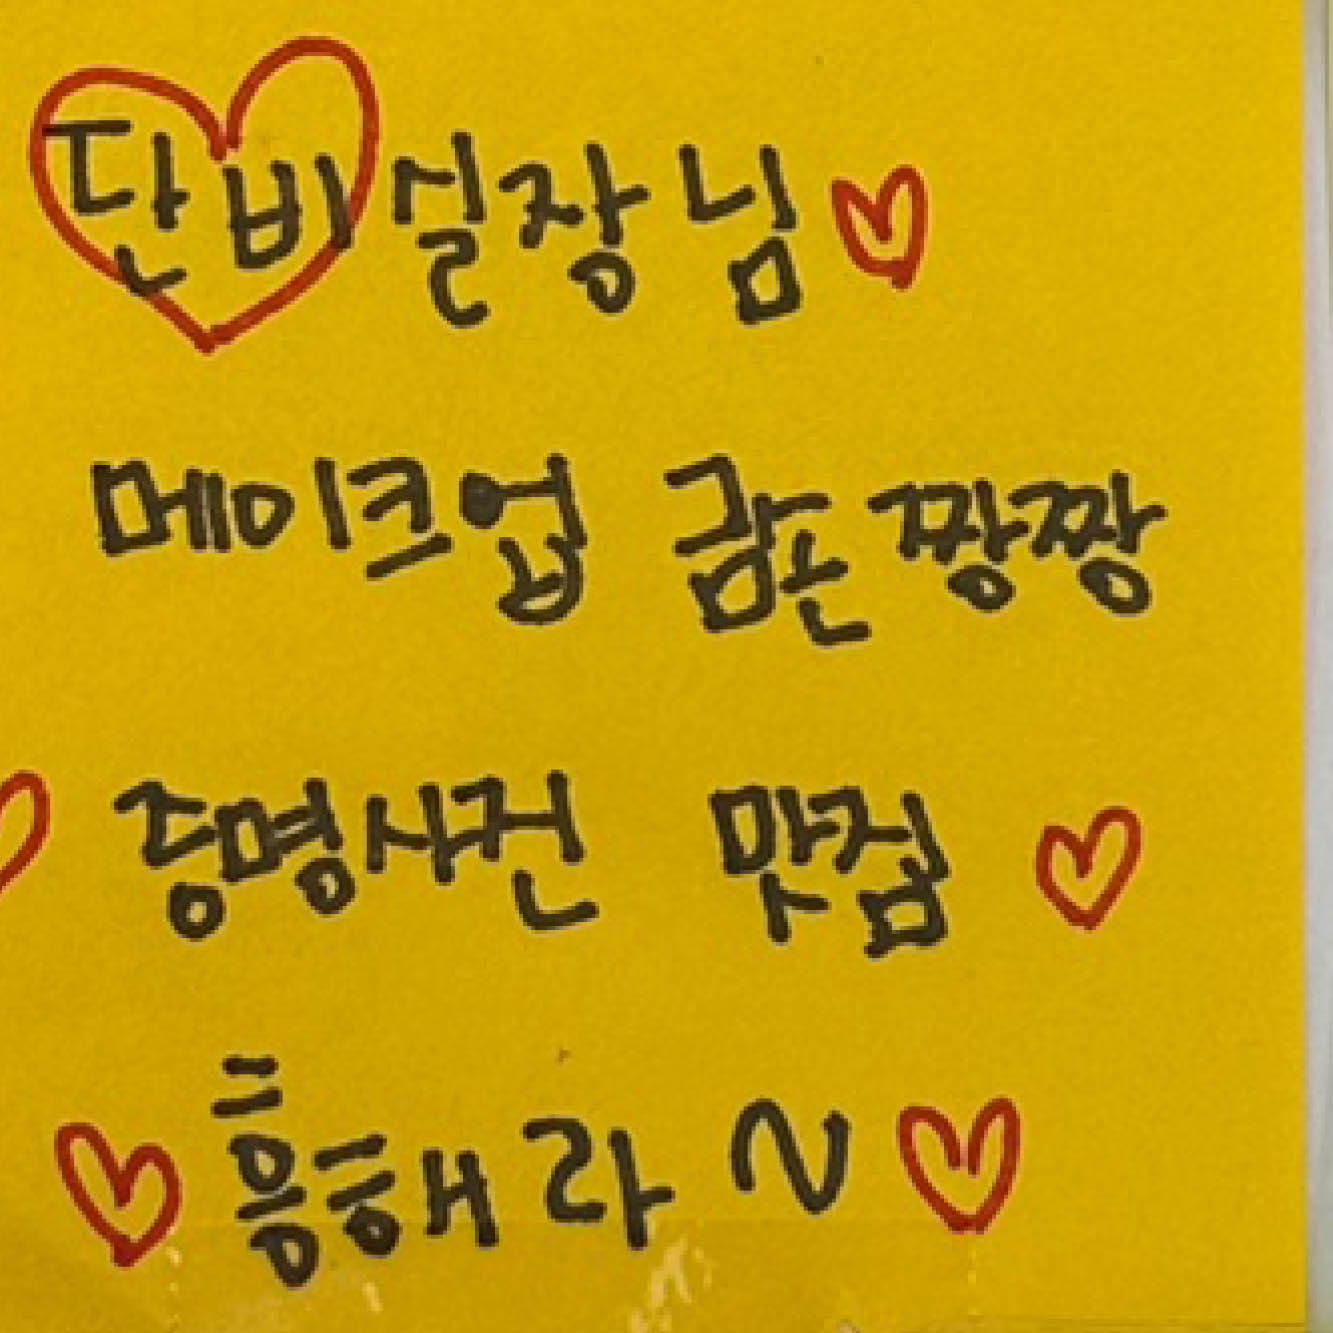 단비실장님♡
메이크업 금손 짱짱
증명사진 맛집 ♡
♡ 흥해라 ~ ♡